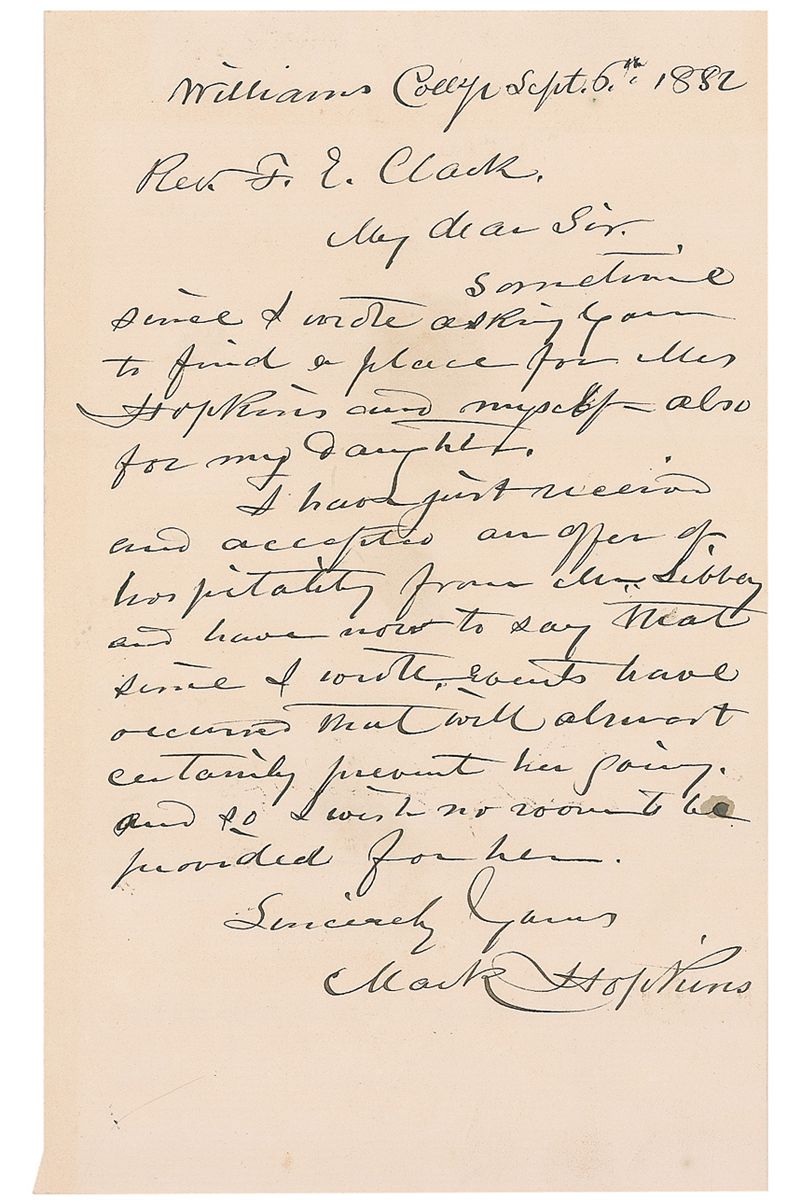 Williams College Sept. 6th. 1882
Rev. F. E. Clark.
My dear Sir.
Sometime
since I wrote asking you
to find a place for Mrs
Hopkins and myself - also
for my daughter.
I have just received
and accepted an offer of
hospitality from Mr. Libbey
and have now to say that
since I wrote, events have
occurred that will almost
certainly prevent her going.
and so I wish no room to be
provided for her.
Sincerely Yours
Mark Hopkins